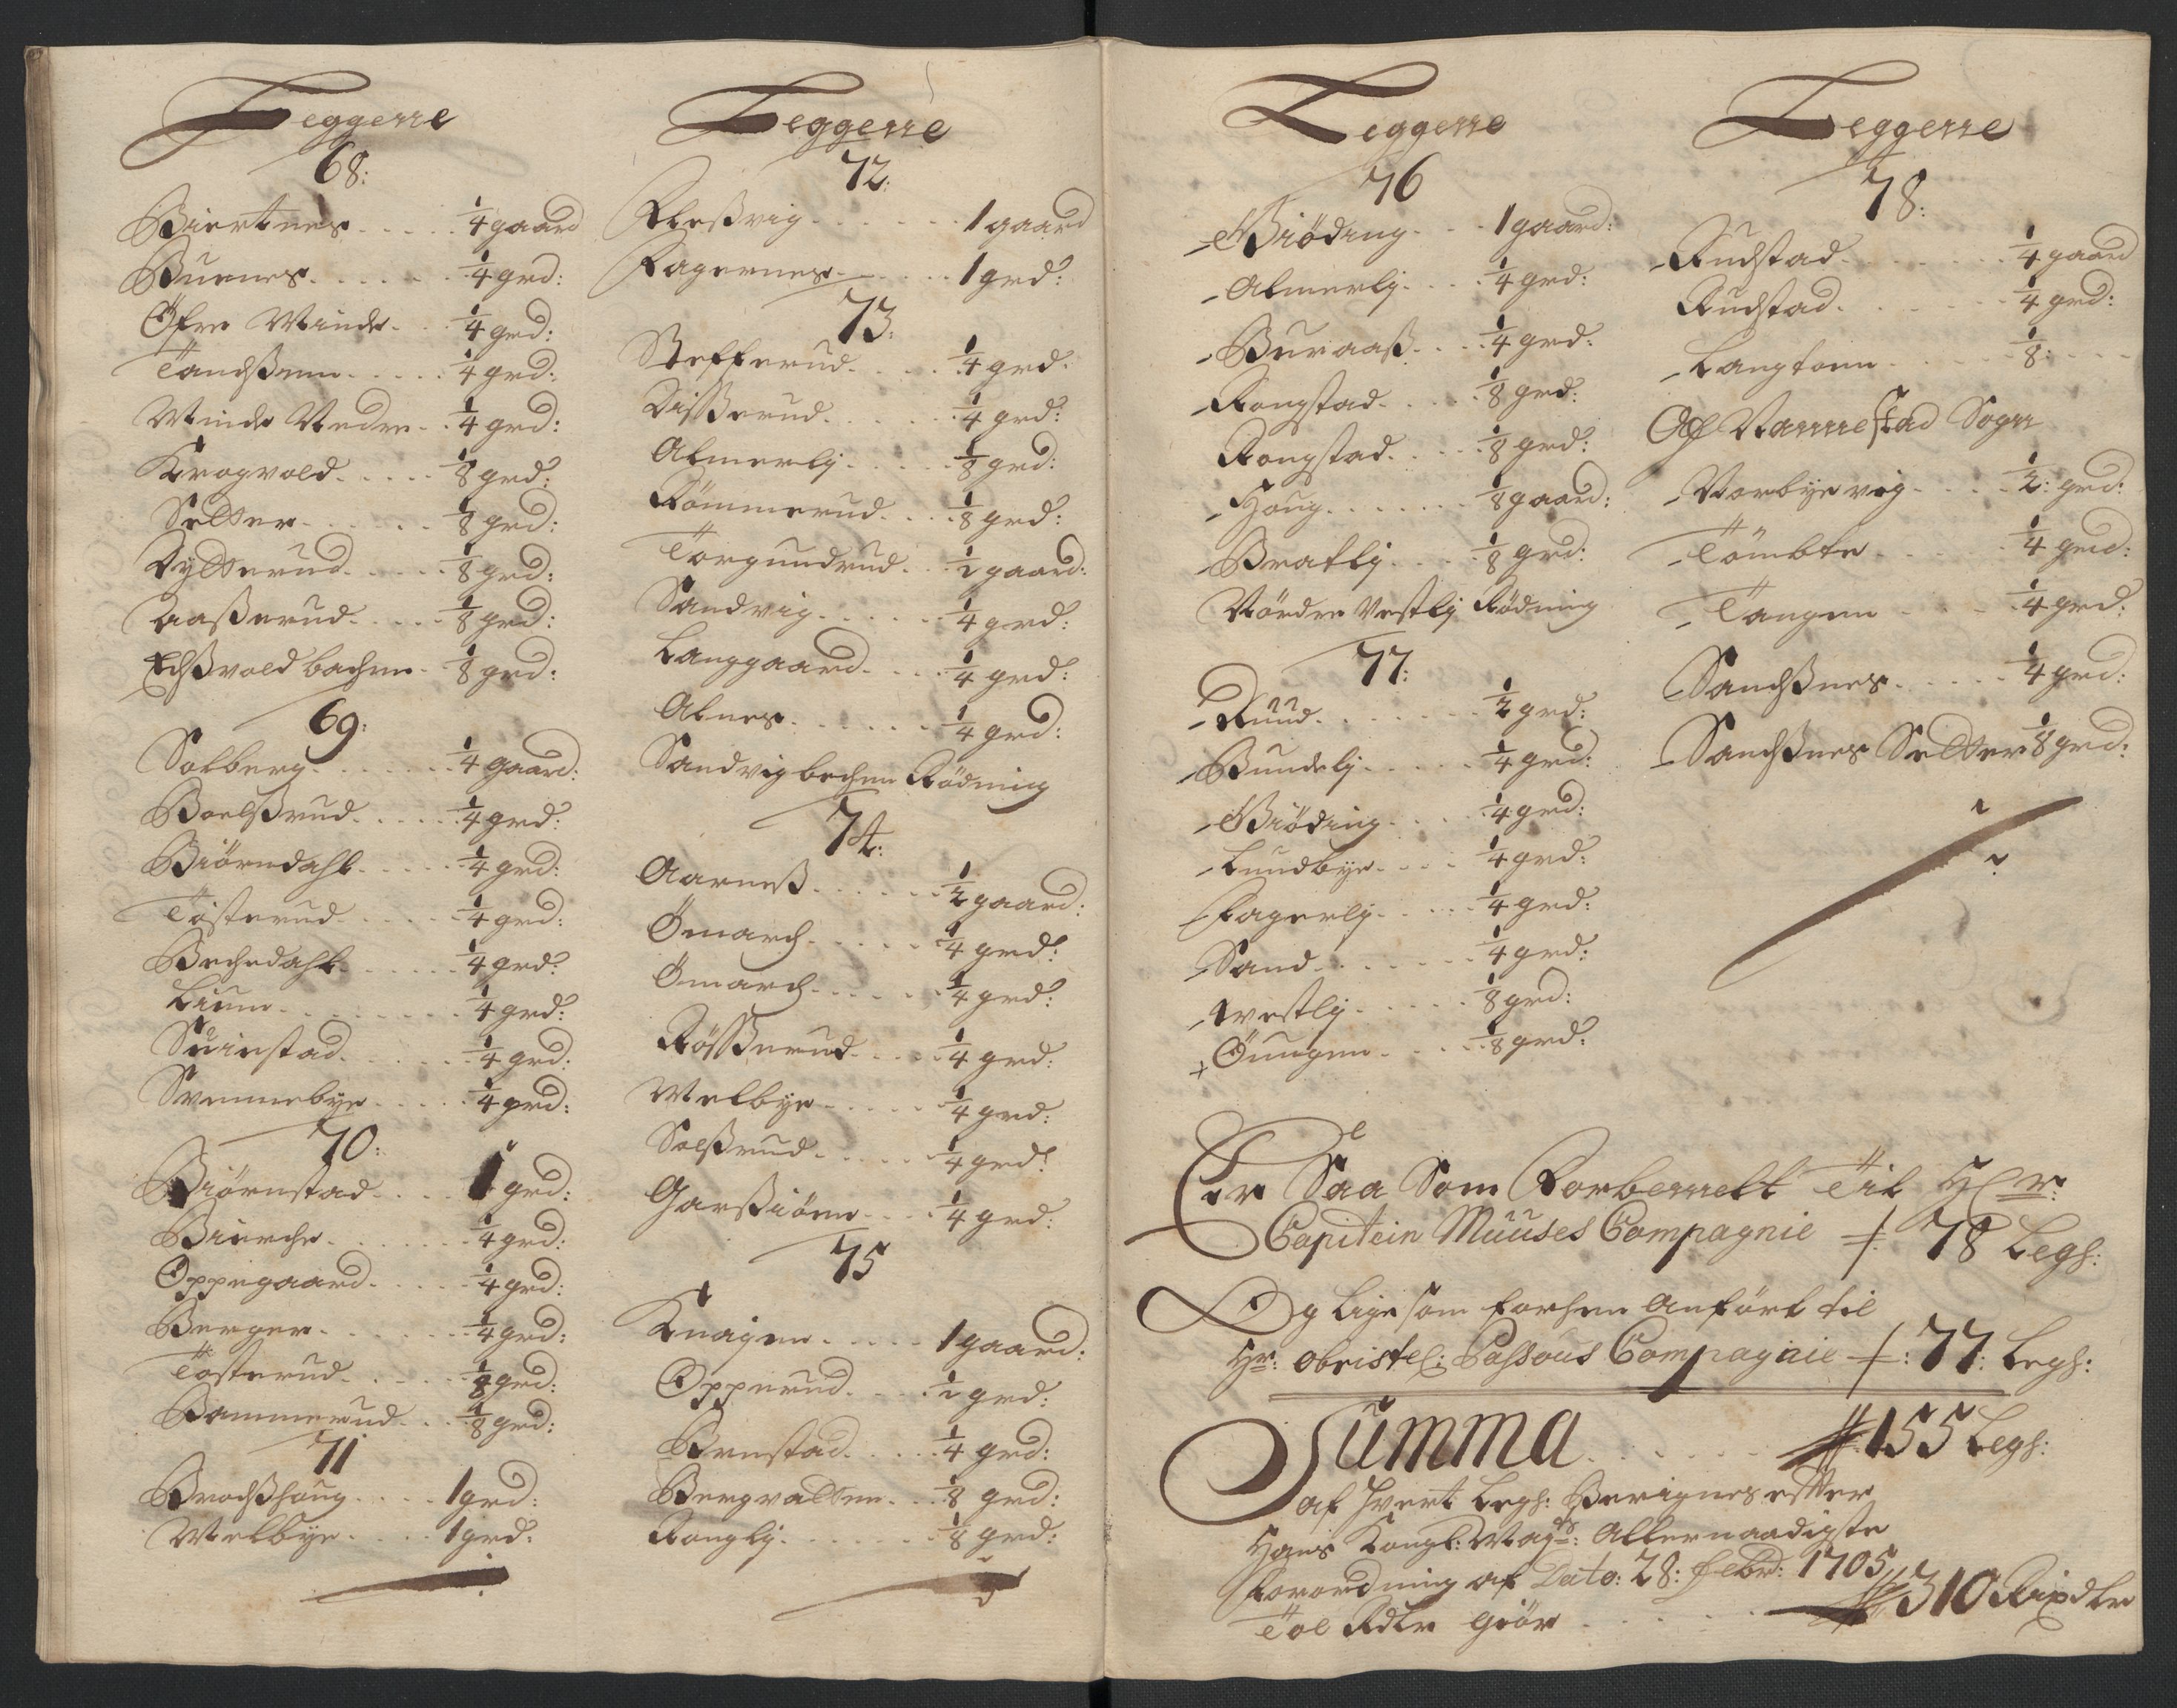 Leggerne
68:
Biertnes 1/4 gaard
Buenes 1/4 grd:
Øfre Winde 1/4 grd:
Tandßenn 1/4 grd:
Winde Nedre 1/4 grd:
Krogvold 1/8 grd:
Setter 1/8 grd:
Rytterud 1/8 grd:
Aaßerud 1/8 grd:
Edßvold bachen 1/8 grd:
69:
Solberg 1/4 gaard:
Boelßrud 1/4 grd:
Biörndahl 1/4 grd:
Tosterud 1/4 grd:
Bechedahl 1/4 grd:
Liene 1/4 grd:
Suinstad 1/4 grd:
Svennebye 1/4 grd:
70:
Biörnstad 1 grd:
Bierche 1/4 grd:
Oppegaard 1/4 grd:
Berger 1/4 grd:
Tosterud 1/8 grd:
Rammerud 1/8 grd:
71
Brochßhoug 1 grd:
Melbye 1 grd:
Leggerne
72:
Fleßvig 1 gaard
Fagernes 1 grd:
73:
Stefferud 1/4 grd:
Dißerud 1/4 grd:
Almerly 1/8 grd:
Römmerud 1/8 grd:
Torgundrud 1/2 gaard:
Sandvig 1/4 grd:
Langgaard 1/4 grd:
Alnes 1/4 grd:
Sandvigbechen Rödning
74:
Aarneß 1/2 gaard:
Ömarch 1/4 grd:
Ömarch 1/4 grd:
Rößerud 1/4 grd:
Melbye 1/4 grd:
Solßrud 1/4 grd:
Garßiönn 1/4 grd:
75
Knajen 1 gaard:
Opperud 1/2 grd:
Brestad 1/4 grd:
Bergvatten 1/8 grd:
Rongly 1/8 grd:
Leggerne
76
Giöding 1 gaard:
Almerly 1/4 grd:
Buraaß 1/4 grd:
Rongstad 1/8 grd:
Rongstad 1/8 grd:
Houg 1/8 gaard:
Bratly 1/8 grd:
Nördre Vestly Rödning
77:
Ruud 1/2 grd:
Bundely 1/4 grd:
Giöding 1/4 grd:
Lundbye 1/4 grd:
Fagerly 1/4 grd:
Sand 1/4 grd:
Westly 1/8 grd:
Öungen 1/8 grd:
Leggerne
78:
Rudstad 1/4 gaard
Rudstad 1/4 grd:
Langtonn 1/8:
Af Nannestad Sogn
Norbye vog 1/2: grd:
Tömbte 1/4 grd:
Tangen 1/4 grd:
Sandßnes 1/4 grd:
Sandßnes Setter 1/8 grd:
Er Saa Som Forbemelt Til Hr:
Capitein Muuses Compagnie 78 Legh:
Og ligesom forhen Anfört til
Hr: Obristel: Passous Compagnie 77: Legh:
Summa 155 Legh:
af hvert Legh: Berignes efter
Hans Kongl: Mayts: Allernaadigste
Forordning af Dato: 28: febr: 1705
Toe Rdlr Giör 310 Rixdlr